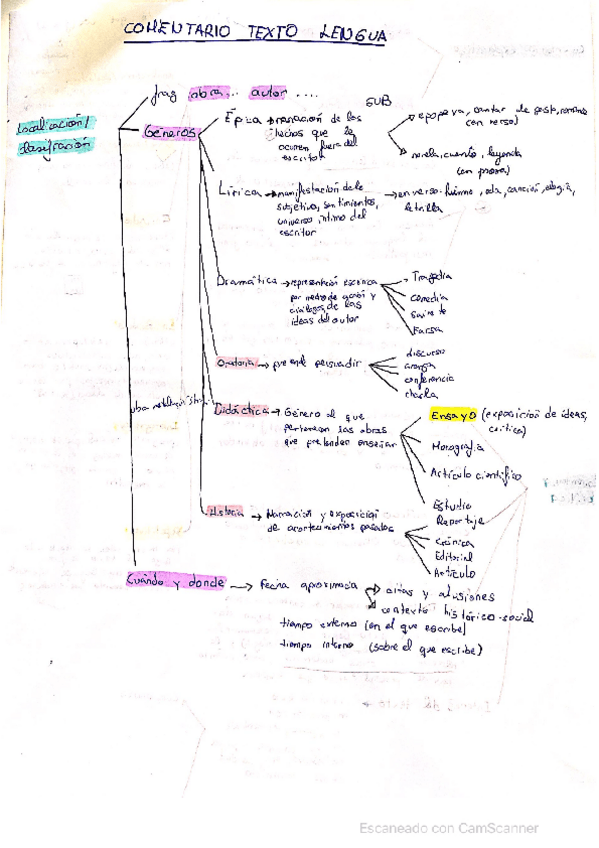 COMENTARIO TEXTO LENGUA
frag obra... autor ....
localización/
clasificación
Géneros
SUB
Épica → narración de los
hechos que le
ocurren fuera del
escritor
epopeya, cantar de gesta, romance
(en verso)
novela, cuento, leyenda
(en prosa)
Lírica → manifestación de lo
subjetivo, sentimientos,
universo íntimo del
escritor
→ en verso: himno, oda, canción, elegía,
letrilla
Dramática → representación escénica
por medio de acción y
diálogos, de las
ideas del autor
Tragedia
Comedia
Sainete
Farsa
Oratoria → pretende persuadir
discurso
arenga
conferencia
charla
Didáctica → Género al que
pertenecen las obras
que pretenden enseñar
Ensayo (exposición de ideas,
crítica)
Monografía
Artículo científico
Estudio
Historia → Narración y exposición
de acontecimientos pasados
Reportaje
Crónica
Editorial
Artículo
Cuándo y donde → Fecha aproximada
citas y alusiones
contexto histórico-social
tiempo externo (en el que escribe)
tiempo interno (sobre el que escribe)
Escaneado con CamScanner